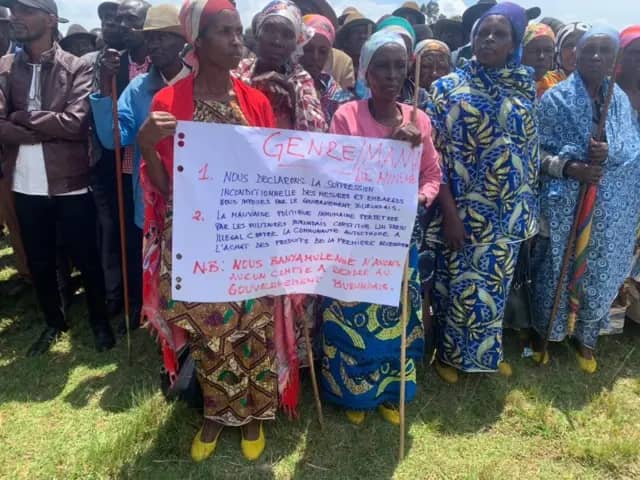 GENRE/MAMA
DE MINEMB
1. NOUS DECLARONS LA SUPPRESSION
INCONDITIONNELLE DES MESURES ET EMBARGOS
NOUS IMPOSES PAR LE GOUVERNEMENT BURUNDAIS.
2. LA MAUVAISE POLITIQUE INHUMAINE PERPETREE
PAR LES MILITAIRES BURUNDAIS CONSTITUE UN
ILLEGAL CONTRE LA COMMUNAUTE AUTOCHTONE A
L'ACHAT DES PRODUITS DE LA PREMIERE NECESSITE
NB: NOUS BANYAMULENGE N'AVONS
AUCUN COMPTE A RENDRE AU
GOUVERNEMENT BURUNDAIS.